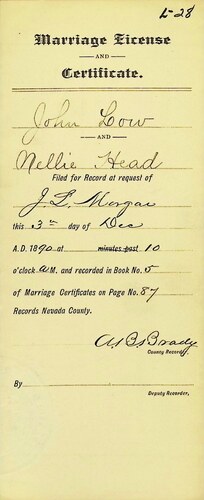 L-28
Marriage License
AND
Certificate.
John Low
AND
Nellie Head
Filed for Record at request of
J L Morgan
this 3rd day of Dec
A.D. 1890 at minutes past 10
o'clock A.M. and recorded in Book No. 5
of Marriage Certificates on Page No. 87
Records Nevada County.
Brady
County Recorder,
By
Deputy Recorder,